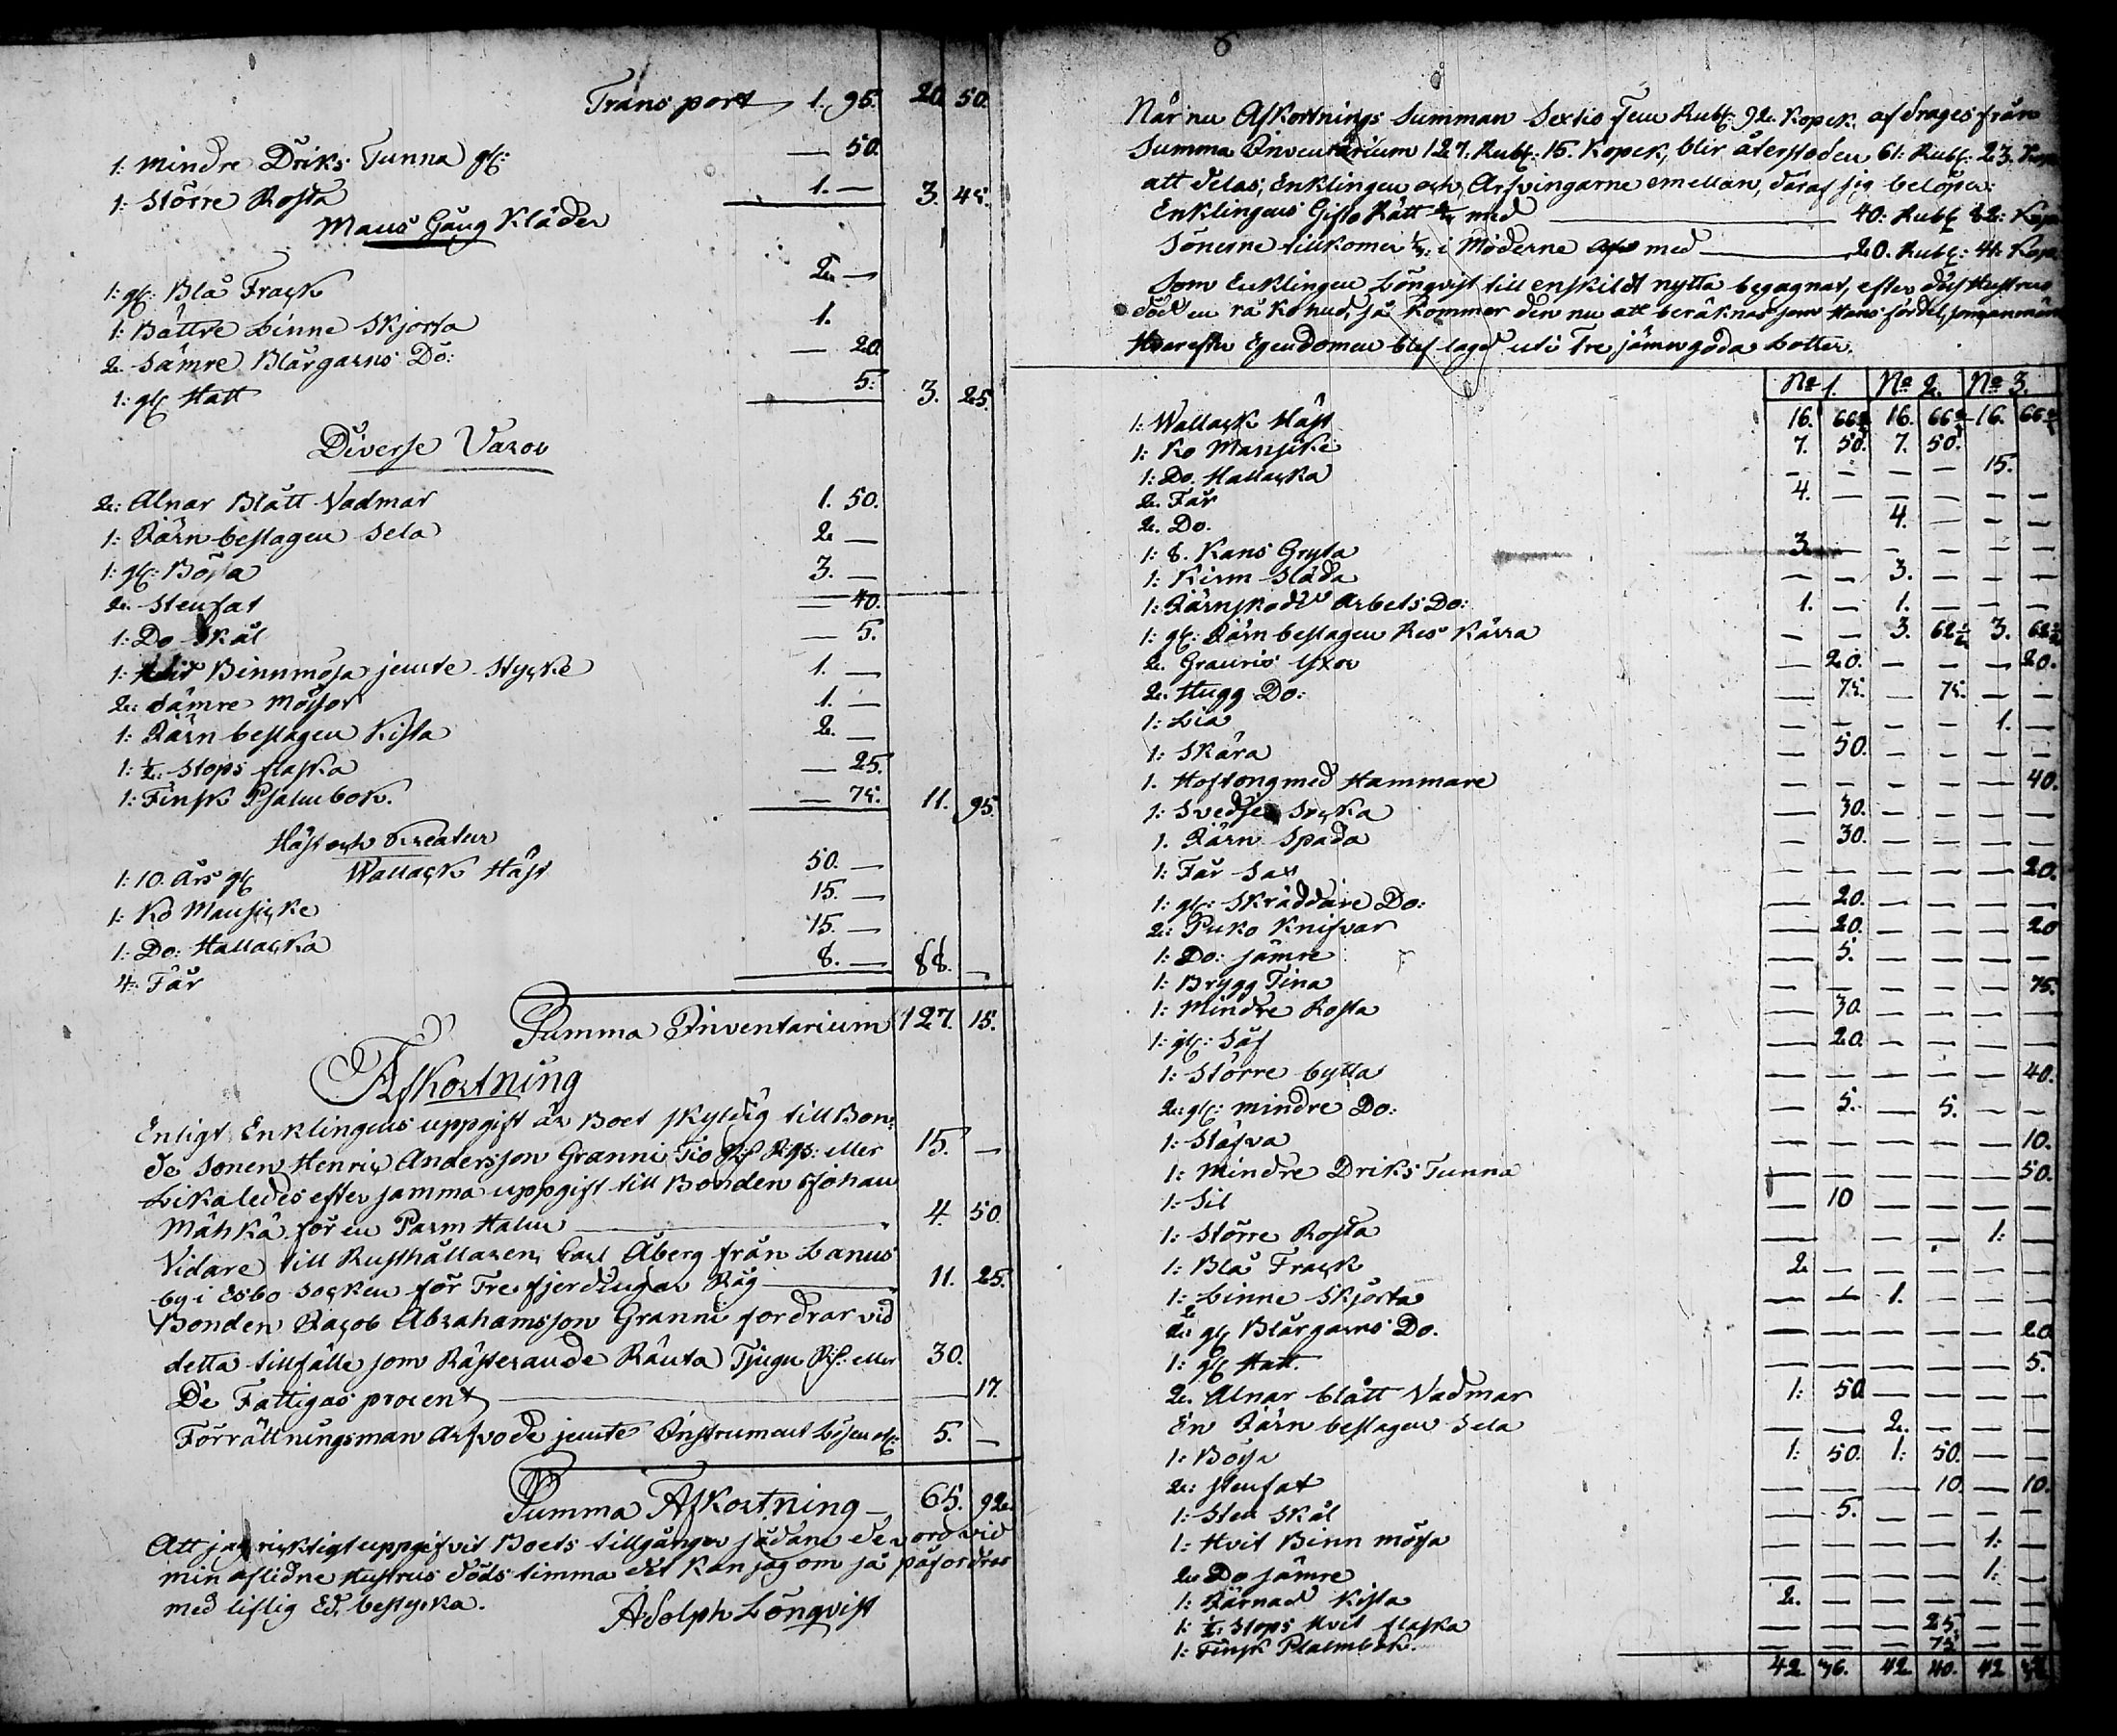 Transport 1. 95. 20. 50.
1: mindre Driks Tunna gl: — 50.
1: Större Rosta 1. — 3. 45.
Mans Gång Kläder
1: gl: Blå Frack 2. —
1: Bättre Linne Skjorta 1.
2. Sämre Blårgarns Do: — 20.
1: gl: Hatt 5: 3. 25.
Diverse Varor
2: Alnar Blått Vadmar 1. 50.
1: Järn beslagen Sela 2. —
1: gl: Bössa 3. —
2. Stenfat — 40.
1: Do Skål — 5.
1: Hvit Binnmössa jemte Stycke 1. —
2: Sämre Mössor 1. —
1: Järn beslagen Kista 2. —
1: ½: Stops flaska — 25.
1: Finsk Psalmbok. — 75. 11. 95.
Häst och Kreatur
1: 10. Års gl: Wallack Häst 50. —
1: Ko Mansicke 15. —
1: Do: Hallacka 15. —
4: Får 8. — 88. —
Summa Inventarium 127. 15.
Afkortning
Enligt Enklingens uppgift är Boet skyldig till Bon-
de Sonen Henric Andersson Granni Tio Rf Rgs: eller 15. —
Likaledes efter samma uppgift till Bonden Johan
Mähkä för en Parm Halm 4. 50.
Vidare till Rusthållaren Carl Åberg från Lanus
by i Esbo Socken för Tre fjerdingar Råg 11. 25.
Bonden Jacob Abrahamsson Granni fordrar vid
detta tillfälle som Resterande Ränta Tjugu Rf: eller 30.
De Fattigas procent — 17.
Förrättningsman Arfvode jemte Instrument Lösen 5. —
Summa Afkortning — 65. 92.
Att jag ricktigt uppgifvit Boets tillgångar sådane de vord vid
min aflidne Hustrus döds timma det kan jag om så påfordras
med liflig Ed, bestyrka.
Adolph Lönqvist
6
När nu Afkortnings Summan Sextio Fem Rubl: 92. Kopek. afdrages från
Summa Inventarium 127: Rubl: 15. Kopek, blir återstoden 61: Rubl: 23. Kop:
att delas; Enklingen och Arfvingarne emellan, däraf sig belöper:
Enklingens Gifto Rätt ⅔ med — 40: Rubl 82: Kop:
Sönerne tillkomer ⅓: i Möderne Arf med — 20. Rubl: 41: Kop:
Som Enklingen Lönqvist till enskildt nytta begagnat, efter dess Hustrus
död en rå Kohud, så kommer den nu att beräknas som Hans fördel,
Hvarefter Egendomen blef lagd uti Tre jämngoda Lotter.
No 1. No 2. No 3.
1: Wallack Häst 16. 66⅔ 16. 66⅔ 16. 66⅔
1: Ko Mansicke 7. 50. 7. 50.
1: Do. Hallacka — — — — 15.
2. Får 4. — — — — —
2. Do. 4. — — —
1: 8. Kans Gryta 3. — — — — —
1: Kirm Släda — — 3. — — —
1: Järnskodd Arbets Do: 1. — 1. — — —
1: gl: Järn beslagen Res Kärra — — 3. 62½ 3. 62½
2. Grauris Yxor — 20. — — — 20.
2: Hugg Do: — 75. — 75. — —
1: Lia — — — — 1. —
1: Skära — 50. — — — —
1. Hoftong med Hammare — — — — — 40.
1: Svedje — 30. — — — —
1. Järn Spada — 30. — — — —
1: Får Sax — — — — — 20.
1: gl: Skräddare Do: — 20. — — — —
2: Puko Knifvar — 20. — — — 20
1: Do: sämre — 5. — — — —
1: Brygg Tina — — — — — 75.
1: Mindre Rosta — 30. — — — —
1: gl: Såf — 20. — — — —
1: Större bytta — — — — — 40.
2: gl: mindre Do: — 5. — 5. — —
1: Stäfva — — — — — 10.
1: Mindre Driks Tunna — — — — — 50.
1: Sil — 10 — — — —
1: Större Rosta — — — 1: —
1: Blå Frack 2. — — — — —
1: Linne Skjorta — — 1. — — —
2: gl: Blårgarns Do. — — — — — 20.
1: gl: Hatt. — — — — — 5.
2. Alnar blått Vadmar 1: 50 — — — —
En Järn beslagen Sela — — 2. — — —
1: Bössa 1: 50. 1: 50. — —
2: Stenfat — — — 10. — 10.
1: Sten Skål — 5. — — — —
1: Hvit Binn mössa — — — — 1: —
2 Do sämre — — — — 1: —
1: Järnad Kista 2. — — — — —
1: ½: Stops Hvit flaska — — — 25. — —
1: Finsk Psalmbok. — — — 75. — —
42. 76. 42. 40. 42